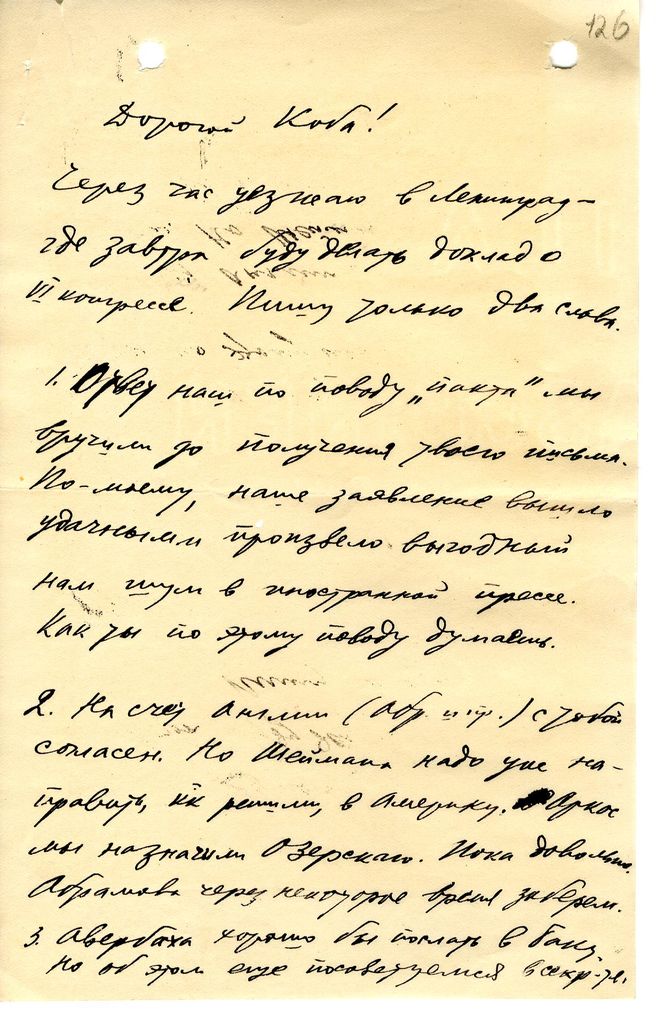 126
Дорогой Коба!
Через час уезжаю в Ленинград –
где завтра буду делать доклад о
VI конгрессе. Пишу только два слова.
1. Ответ наш по поводу „пакта“ мы
вручили до получения твоего письма.
По-моему, наше заявление вышло
удачным и произвело выгодный
нам шум в иностранной прессе.
Как ты по этому поводу думаешь.
2. На счет Англии (Абр. и пр.) с тобой
согласен. Но Шеймана надо уже на-
править, как решили, в Америку. В Аркос
мы назначили Озерского. Пока довольно.
Абрамова через некоторое время заберем.
3. Авербаха хорошо бы послать в Баку,
но об этом еще посоветуемся в секр-те.